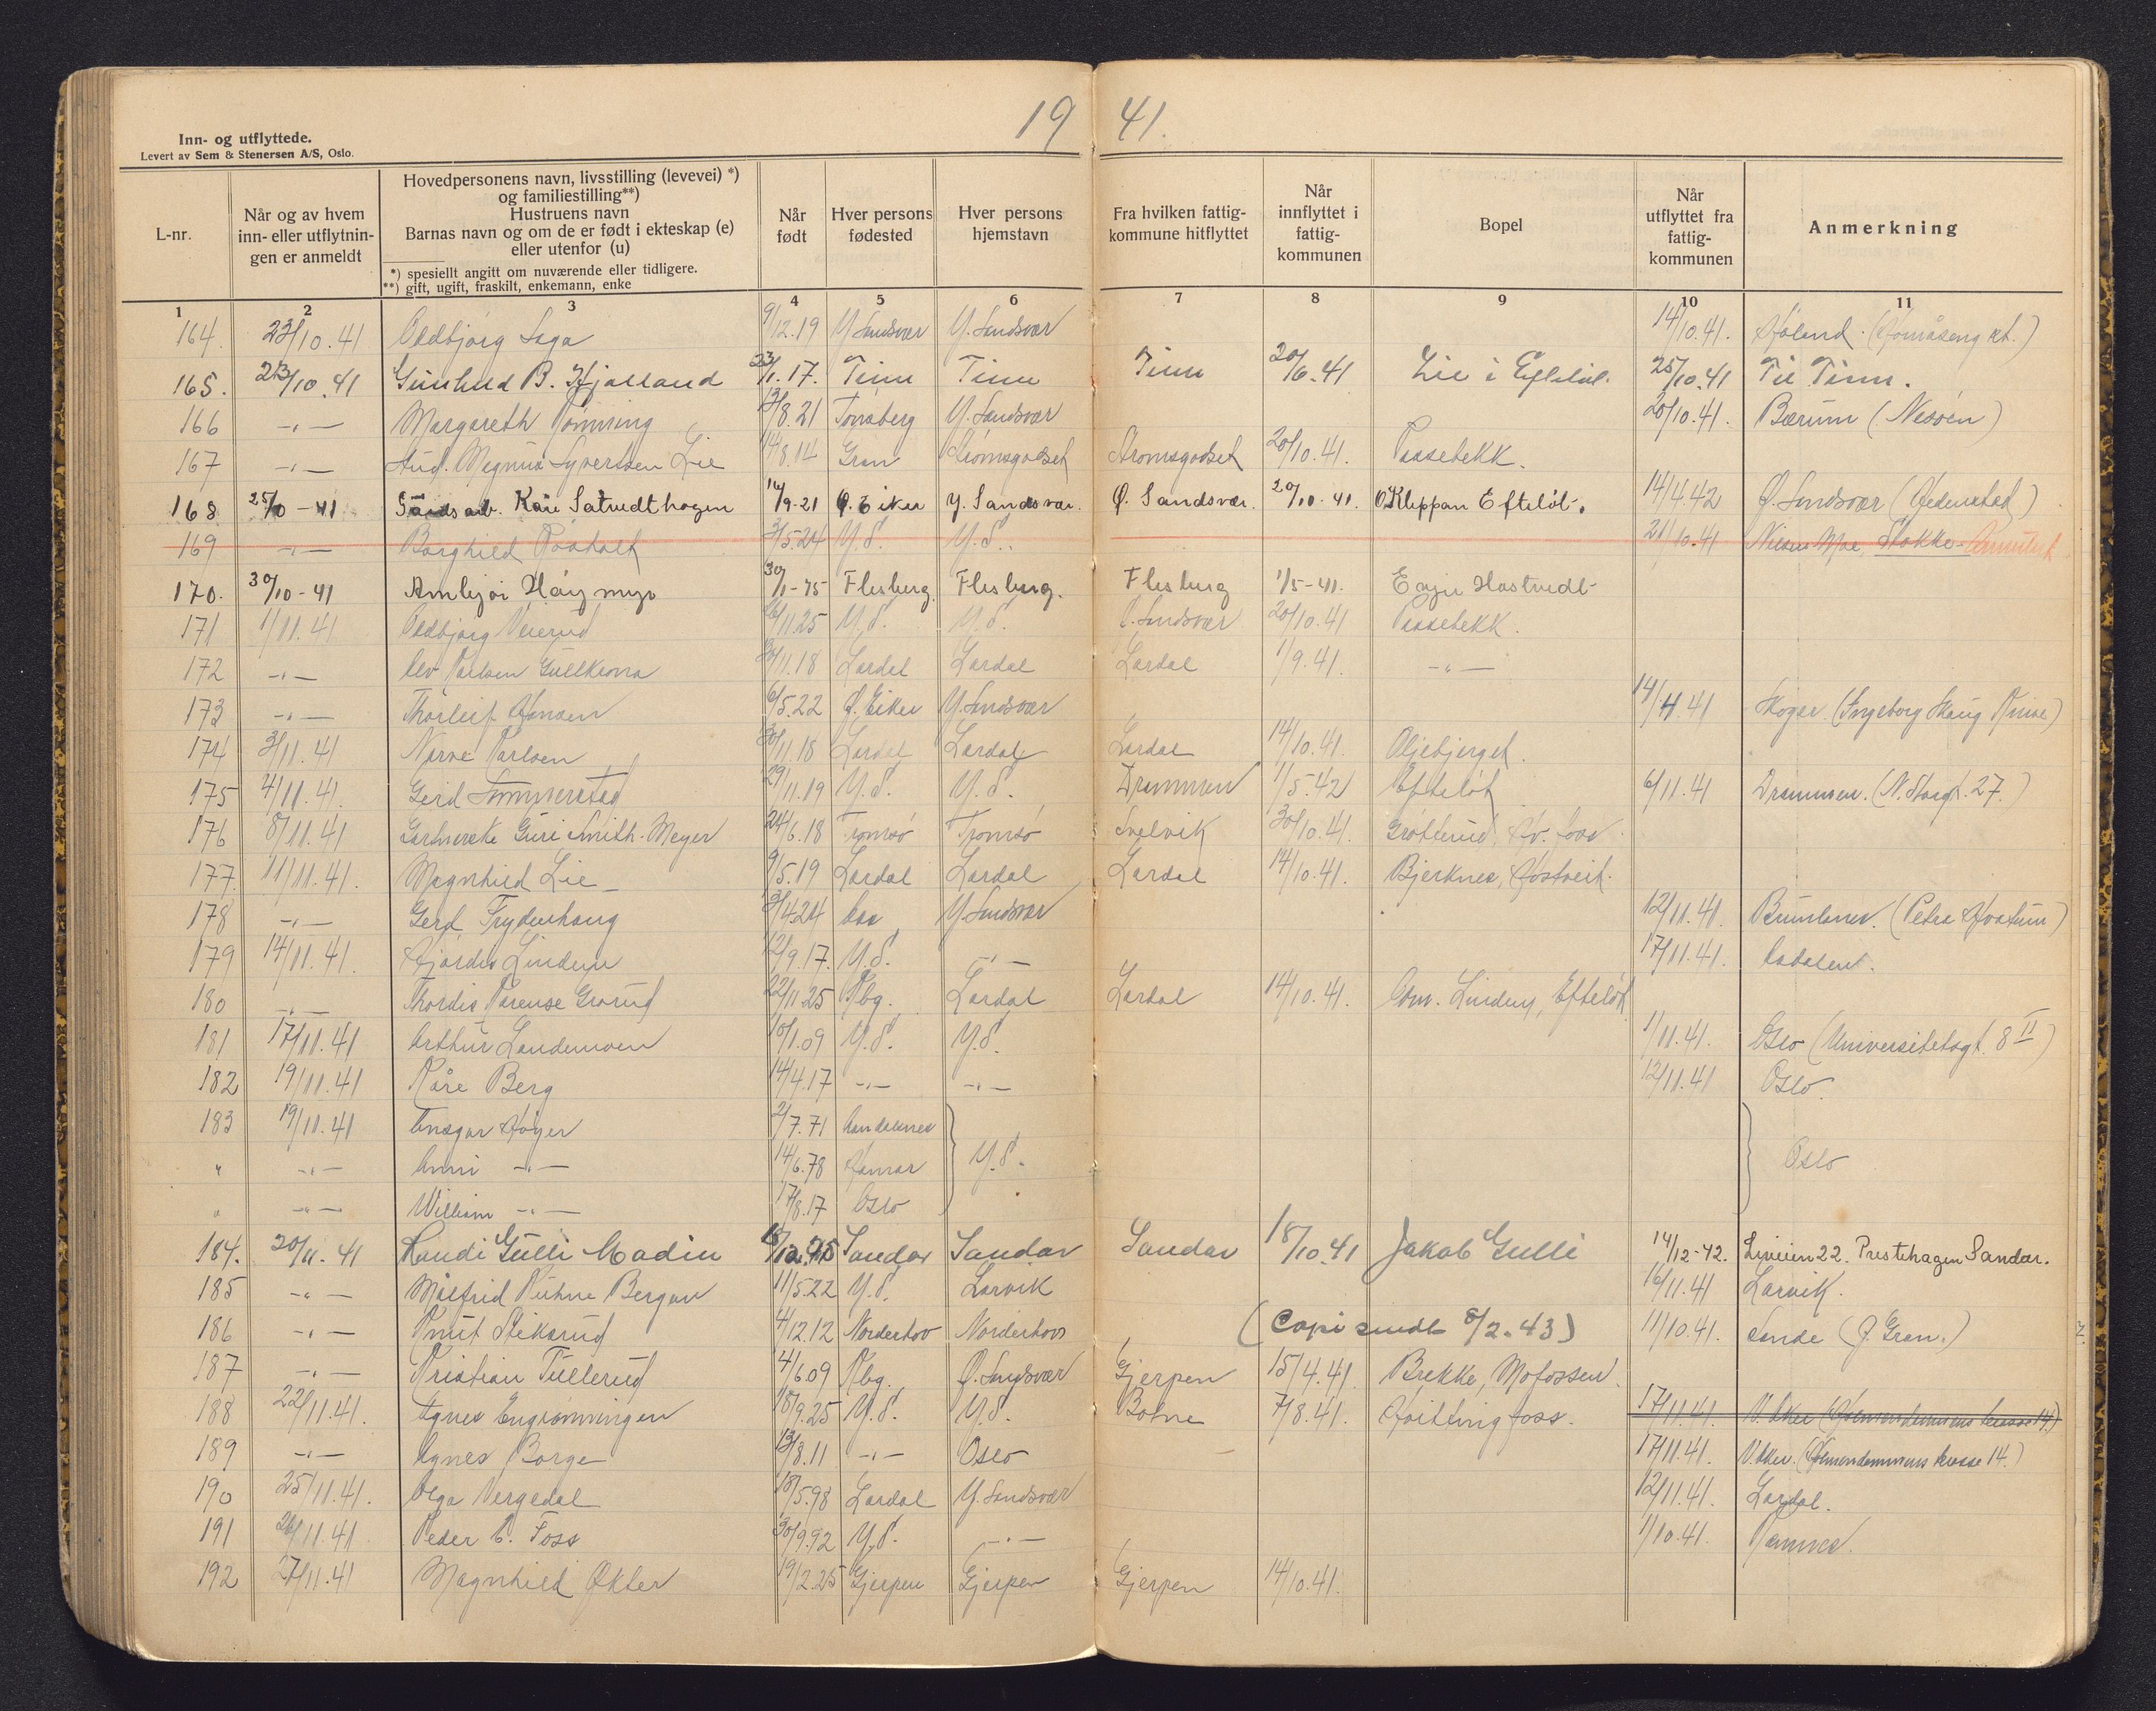 19 41.
Inn- og utflyttede.
Levert av Sem & Stenersen A/S, Oslo.
L-nr.
Når og av hvem inn- eller utflytnin-gen er anmeldt
Hovedpersonens navn, livsstilling (levevei) *) og familiestilling**) Hustruens navn Barnas navn og om de er født i ekteskap (e) eller utenfor (u)
*) spesiellt angitt om nuværende eller tidligere.
**) gift, ugift, fraskilt, enkemann, enke
Når født
Hver persons fødested
Hver persons hjemstavn
Fra hvilken fattig-kommune hitflyttet
Når innflyttet i fattig-kommunen
Bopel
Når utflyttet fra fattig-kommunen
Anmerkning
1 2 3 4 5 6 7 8 9 10 11
164. 23/10.41 Oddbjørg Saga 9/12.19 Y. Sandsvær Y. Sandsvær 14/10.41. Høland.
165. 23/10.41 Gunhild B. Hjalland 23/1.17. Tinn Tinn Tinn 20/6.41 Lie i Efteløt. 25/10.41 Til Tinn.
166 -"- Margareth Rønning 13/8.21 Tønsberg Y. Sandsvær 20/10.41. Bærum (Nesøen)
167 -"- Stud. Magnus Syverssen Lie 14/8.14 Gran Strømsgodset Strømsgodset 20/10.41. Passebekk.
168 25/10-41 Gårdsarb. Kåre Satvedthagen 14/9-21 Ø. Eiker Y. Sandsvær. Ø. Sandsvær. 20/10-41. O. Kleppan Efteløt. 14/4.42 Ø. Sandsvær (Hedenstad)
169 -"- Borghild Paaholt 3/5.24 Y.S. Y.S. 21/10.41 Nilsen Moe, Stokke - Annulert
170. 30/10-41 Arnbjør Haugmyr 30/1-75 Flesberg Flesberg. Flesberg 1/5-41. Enger Hostvedt
171 1/11.41 Oddbjørg Veierud 6/11.25 Y.S. Y.S. Ø. Sandsvær 20/10.41 Passebekk.
172 -"- Olv Karlsen Gullkrona 30/11.18 Lardal Lardal Lardal 1/9.41. -"-
173 -"- Thorleif Hansen 6/5.22 Ø. Eiker Y. Sandsvær 14/4.41 Skoger (Ingeborg Haug)
174 3/11.41 Narve Karlsen 30/11.18 Lardal Lardal Lardal 14/10.41. Oljebjerget.
175 4/11.41. Gerd Sommerstad 29/11.19 Y.S. Y.S. Drammen 1/5.42 Efteløt 6/11.41 Drammen. (N. Storgt. 27.)
176 8/11.41 Gartnerske Guri Smith-Meyer 24/6.18 Tromsø Tromsø Svelvik 30/10.41. Grøtterud, Hv. foss.
177. 11/11.41. Magnhild Lie 9/5.19 Lardal Lardal Lardal 14/10.41. Bjerknes, Hostveit.
178 -"- Gerd Frydenhaug 3/4.24 Aas Y. Sandsvær 12/11.41. Brunlanes. (Petra Hvatum)
179 14/11.41. Hjørdis Lindum 12/9.17. Y.S. -"- 17/11.41. Aadalen.
180 -"- Thordis Karense Grorud 22/11.25 Kbg. Lardal Lardal 14/10.41. Lindeny, Efteløt
181 17/11.41 Arthur Landemoen 10/1.09 Y.S. Y.S. 1/11.41. Oslo (Universitetsgt. 8 II)
182 19/11.41 Kåre Berg 14/4.17 -"- -"- 12/11.41 Oslo.
183 19/11.41 Ansgar Høyer 2/7.71 Aandalsnes Y.S. Oslo
" -"- Anni -"- 14/6.78 Hamar
" -"- William -"- 17/8.17 Oslo
184. 20/11.41 Randi Gulli Madiu Sandar Sandar Sandar 18/10.41 Jakob Gulli 14/12-42. Liveien 22. Prestehagen Sandar.
185 -"- Målfrid Kühne Bergan 11/5.22 Y.S. Larvik 16/11.41 Larvik.
186 -"- Knut Stiksrud 4/12.12 Norderhov Norderhov (Copi sendt 8/2.43) 11/10.41. Sande (J. Gran.)
187 -"- Kristian Tullerud 4/6.09 Kbg. Ø. Sandsvær Gjerpen 15/4.41. Brekke, Mofossen.
188 22/11.41. Agnes Engrønningen 18/9.25 Y.S. Y.S. Botne 7/8.41. Hvittingfoss. 17/11.41. V. Aker (Holmendammens terrasse 14.)
189 -"- Agnes Borge 13/8.11 -"- Oslo 17/11.41. V. Aker. (Holmendammens terrasse 14.)
190 25/11.41. Olga Vergedal 18/5.98 Lardal Y. Sandsvær 12/11.41. Lardal.
191 26/11.41 Peder C. Foss 30/9.92 Y.S. -"- 1/10.41. Ramnes.
192 27/11.41 Magnhild Økter 19/2.25 Gjerpen Gjerpen Gjerpen 14/10.41.